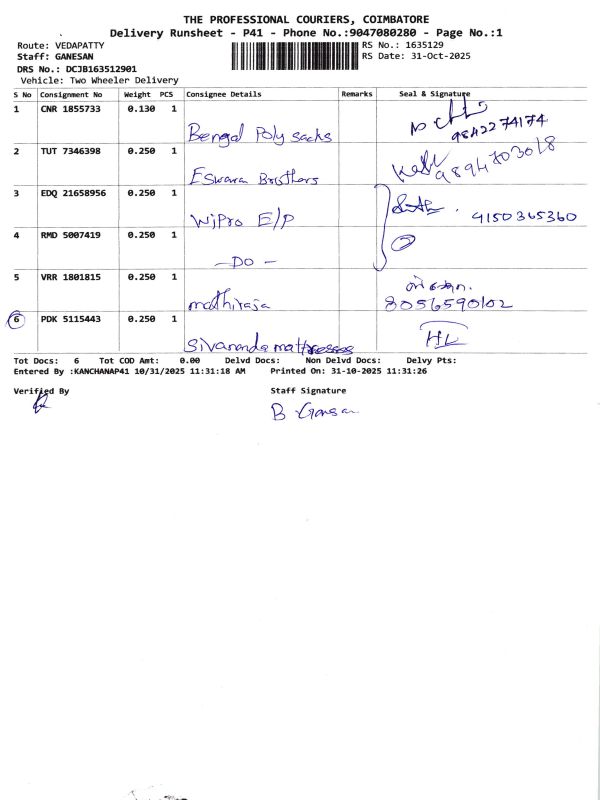 THE PROFESSIONAL COURIERS, COIMBATORE
Delivery Runsheet - P41 - Phone No.:9047080280 - Page No.:1
Route: VEDAPATTY RS No.: 1635129
Staff: GANESAN RS Date: 31-Oct-2025
DRS No.: DCJB163512901
Vehicle: Two Wheeler Delivery
S No Consignment No Weight PCS Consignee Details Remarks Seal & Signature
1 CNR 1855733 0.130 1
Bengal Poly sacks 9842274174
2 TUT 7346398 0.250 1
Eswara Brothers 9894703018
3 EDQ 21658956 0.250 1
Wipro E/P 9150365360
4 RMD 5007419 0.250 1
-DO-
5 VRR 1801815 0.250 1
mathiraja 8056590102
6 PDK 5115443 0.250 1
Sivananda mattresses HL
Tot Docs: 6 Tot COD Amt: 0.00 Delvd Docs: Non Delvd Docs: Delvy Pts:
Entered By :KANCHANAP41 10/31/2025 11:31:18 AM Printed On: 31-10-2025 11:31:26
Verified By Staff Signature
B